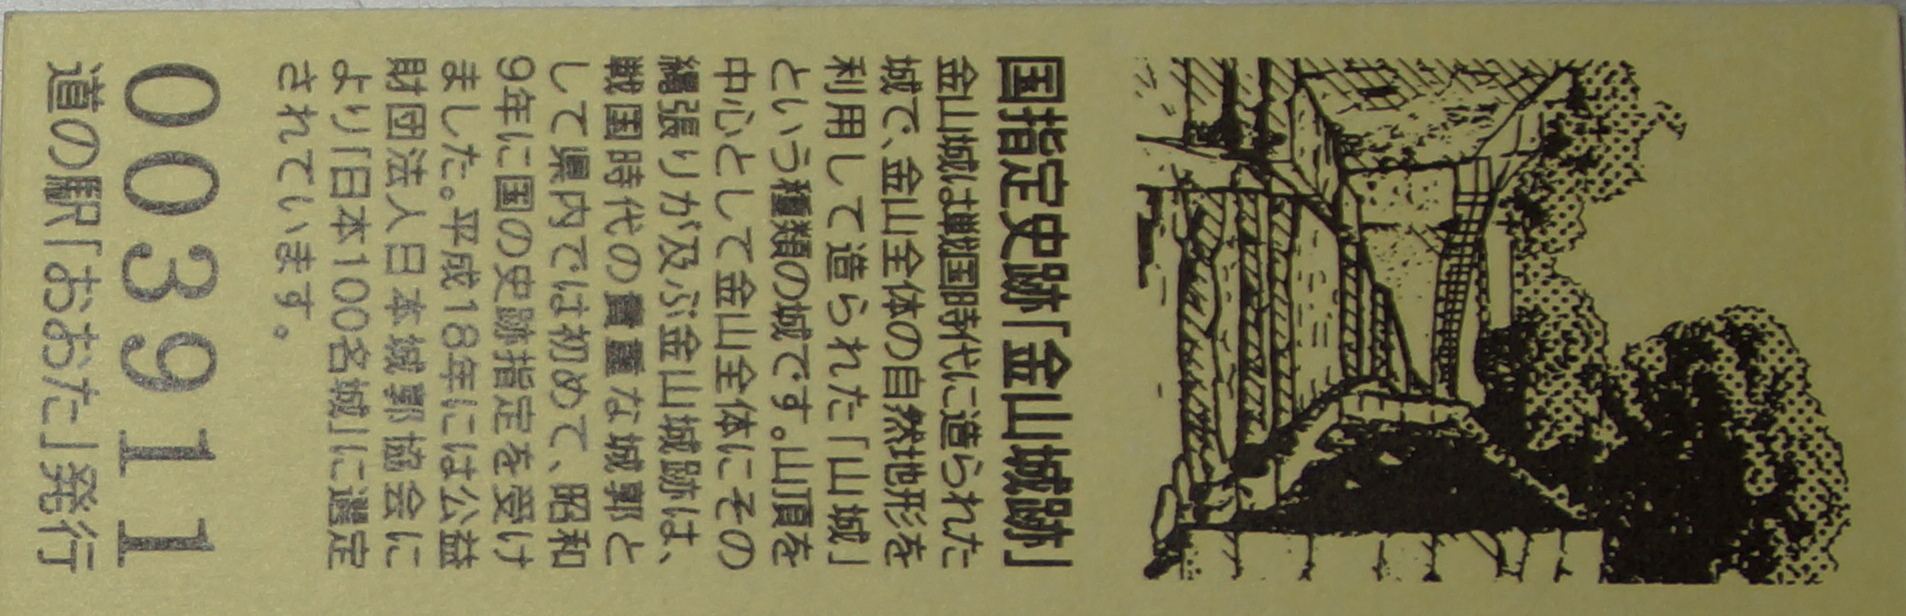 国指定史跡「金山城跡」
金山城は戦国時代に造られた
城で、金山全体の自然地形を
利用して造られた「山城」
という種類の城です。山頂を
中心として金山全体にその
縄張りが及ぶ金山城跡は、
戦国時代の貴重な城郭と
して県内では初めて、昭和
9年に国の史跡指定を受け
ました。平成18年には公益
財団法人日本城郭協会に
より「日本100名城」に選定
されています。
003911
道の駅「おおた」発行